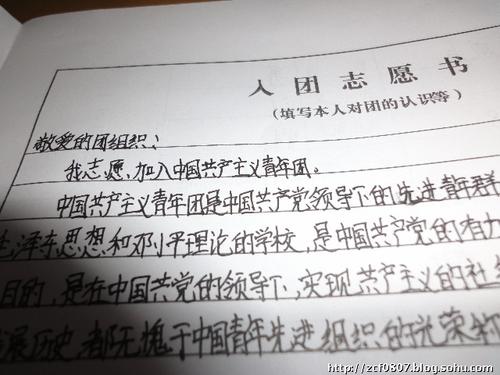 入团志愿书
(填写本人对团的认识等)
敬爱的团组织:
我志愿,加入中国共产主义青年团。
中国共产主义青年团是中国共产党领导下的先进青年群
泽东思想和邓小平理论的学校,是中国共产党的有力
目的,是在中国共党的领导下,实现共产主义的社
展历史,都无愧于中国青年先进组织的光荣称
http://zcf0807.blog.sohu.com